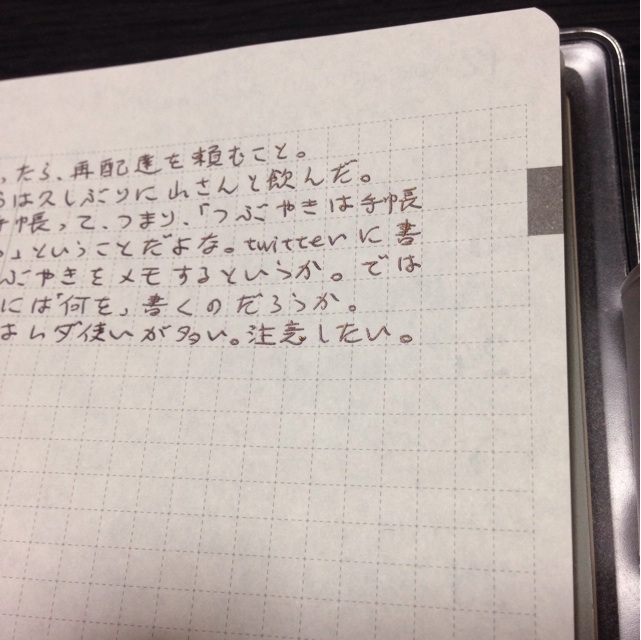 ったら、再配達を頼むこと。
るは久しぶりに山さんと飲んだ。
手帳って、つまり、「つぶやきは手帳
」ということだよな。twitterに書
んごやきをメモするというか。では
には「何を」書くのだろうか。
はムダ使いが多い。注意したい。